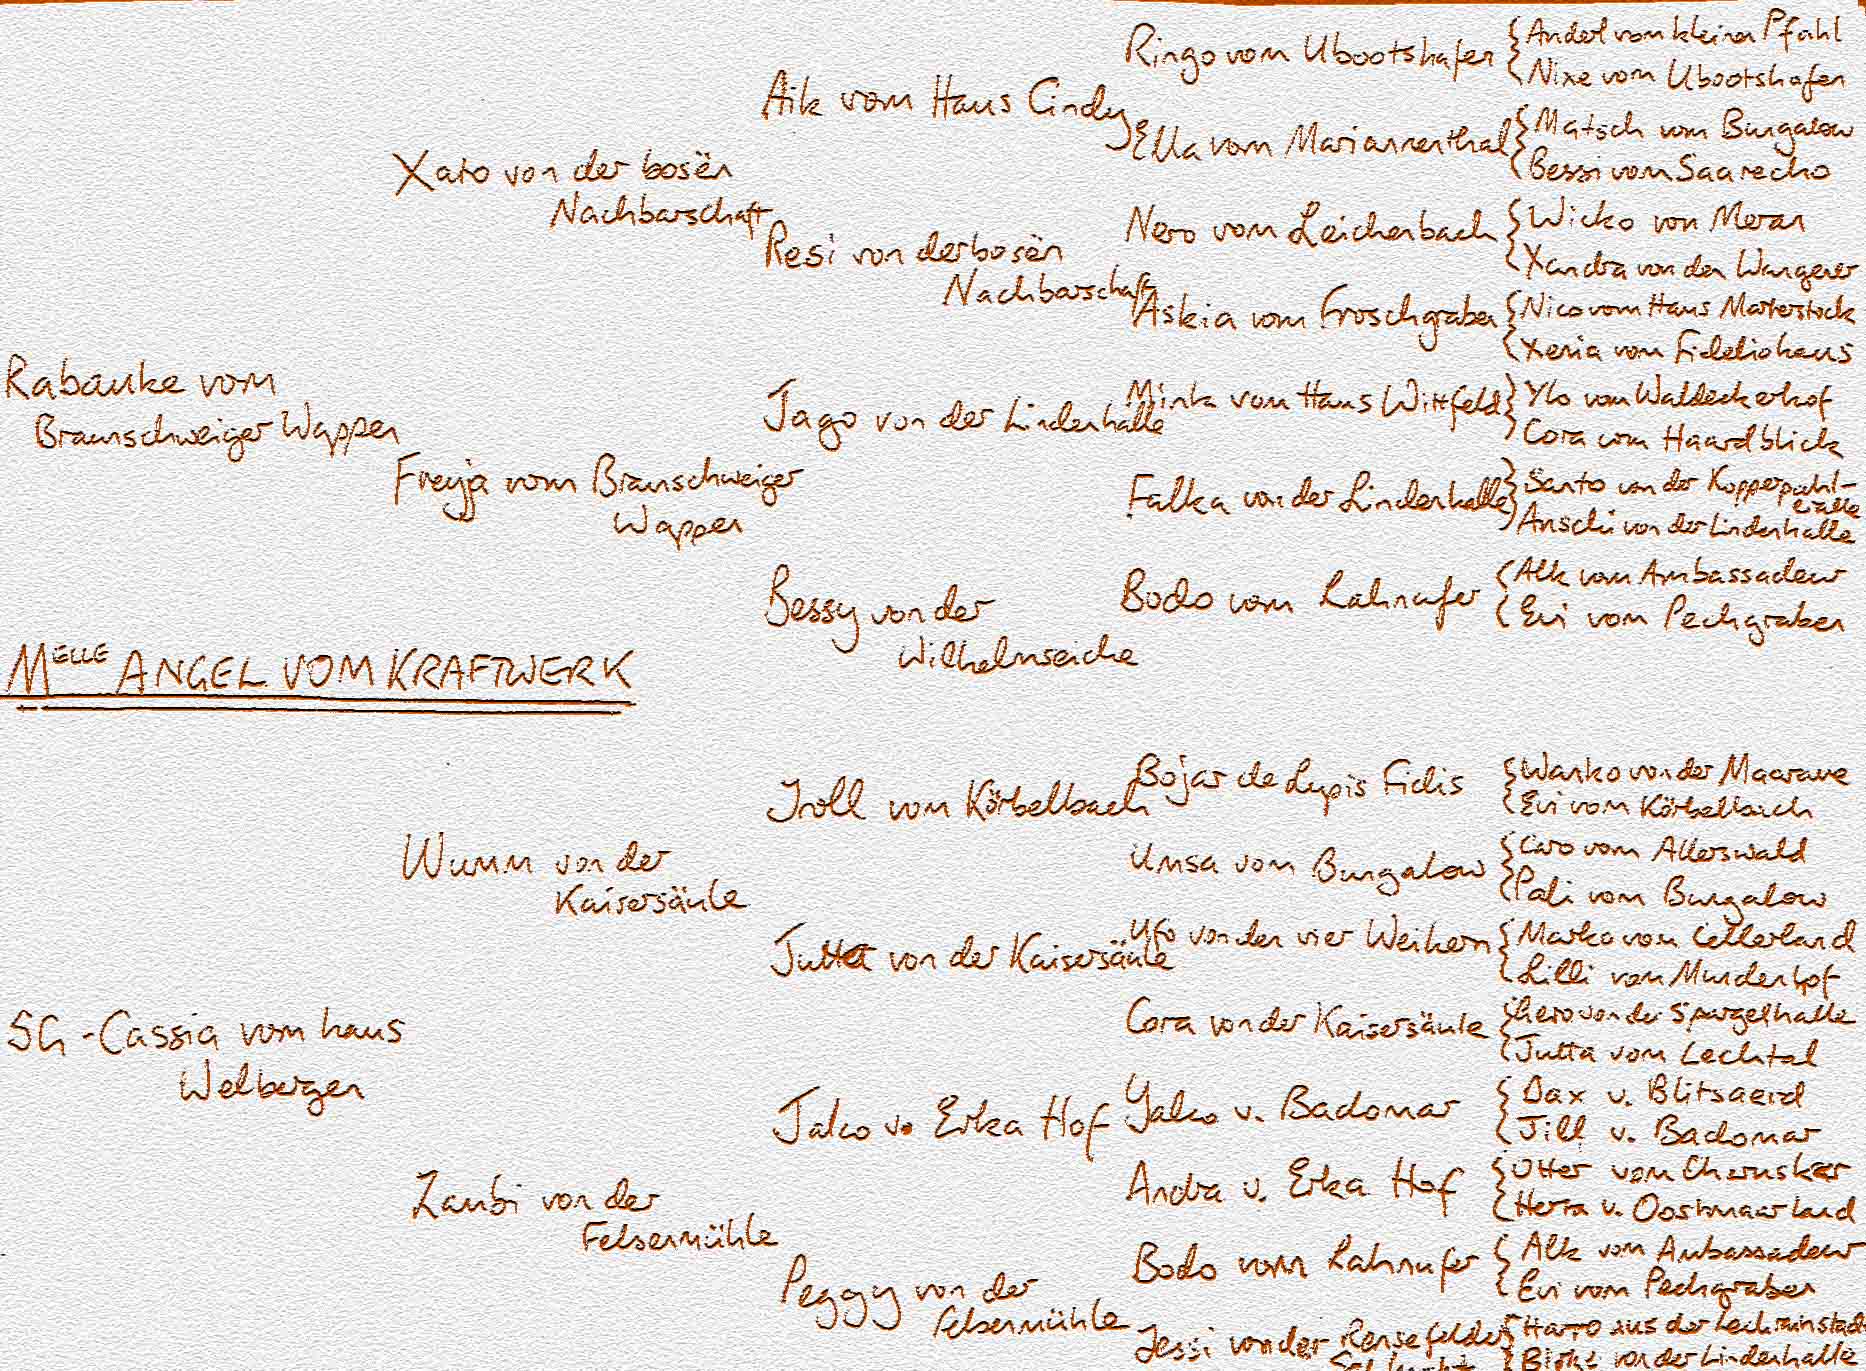 Ringo vom Ubootshafen
Anderl vom kleinen Pfahl
Nixe vom Ubootshafen
Aik vom Haus Cindy
Ella vom Mariannenthal
Matsch vom Bungalow
Bessi vom Saarecho
Xato von der bosën
Nachbarschaft
Nero vom Leichenbach
Wicko von Meran
Xandra von den Wangerer
Resi von der bosën
Nachbarschaft
Askia vom Froschgraben
Nico vom Haus Marterstock
Xenia vom Fideliohaus
Rabauke vom
Braunschweiger Wappen
Jago von der Lindenhalle
Mink vom Haus Wittfeld
Ylo vom Waldeckerhof
Cora vom Haardblick
Freyja vom Braunschweiger
Wappen
Falka von der Lindenhalle
Santo von der Kopperpahl-
eralle
Anschi von der Lindenhalle
Bessy von der
Wilhelmseiche
Bodo vom Lahnufer
Alk vom Ambassadeur
Evi vom Pechgraben
MELLE ANGEL VOM KRAFTWERK
Troll vom Körbelbach
Bojar de Lupis Fidis
Wanko von der Maaraue
Evi vom Körbelbach
Wumm von der
Kaisersäule
Umsa vom Bungalow
Caro vom Allerswald
Pali vom Bungalow
Jutta von der Kaisersäule
Ufo von den vier Weihern
Marko vom Cellerland
Lilli vom Mundenhof
SG-Cassia vom haus
Welbergen
Cora von der Kaisersäule
Gero von der Spargelhalle
Jutta vom Lechtal
Jako v. Erka Hof
Yako v. Badomar
Dax v. Blitsaerd
Jill v. Badomar
Zambi von der
Felsenmühle
Andra v. Erka Hof
Otter vom Cherusker
Herra v. Oostmaarland
Peggy von der
Felsenmühle
Bodo vom Lahnufer
Alk vom Ambassadeur
Evi vom Pechgraben
Jessi von der Rensefelder
Harro aus der Lechrainstadt
von der Lindenhalle